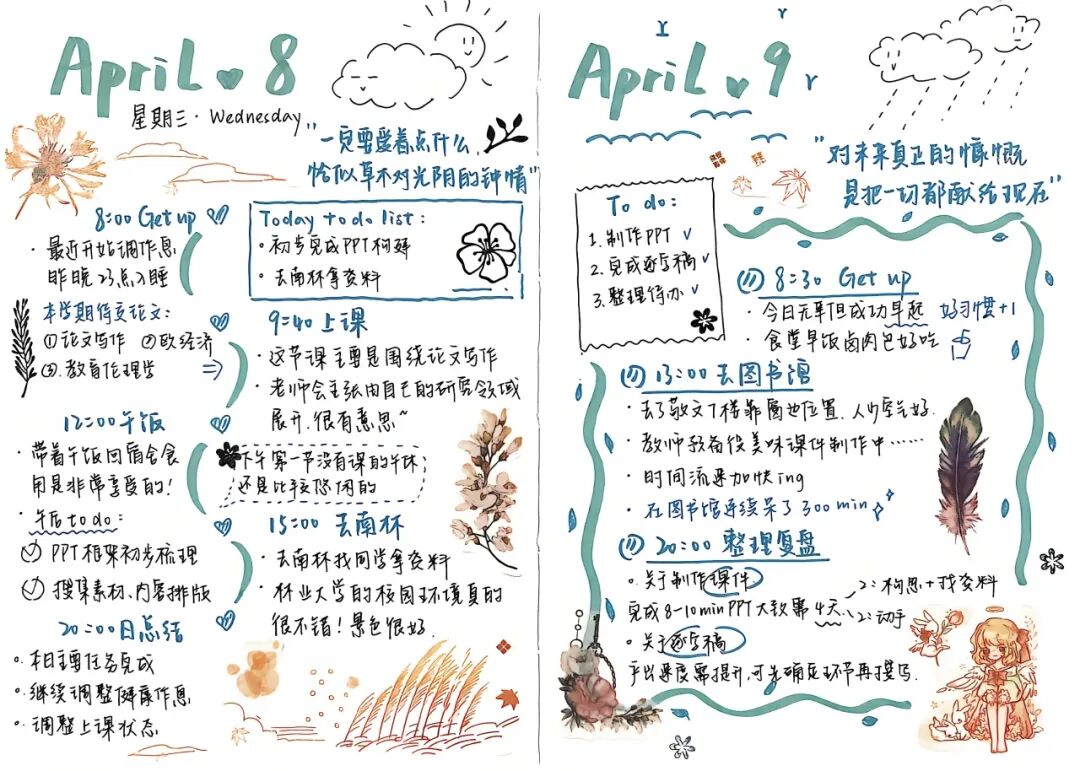 April 8
星期三·Wednesday
"一定要爱着点什么,
恰似草木对光阴的钟情"
8:00 Get up
·最近开始调作息
昨晚23点入睡
本学期待交论文:
①论文写作 ②欧经济
③.教育伦理学
12:00午饭
带着午饭回宿舍食
用是非常享受的!
·午后todo:
PPT框架初步梳理
搜集素材、内容排版
20:00日总结
本日主要任务完成
继续调整健康作息
调整上课状态
Today to do list:
·初步完成PPT构建
·去南林拿资料
9:40上课
·这节课主要是围绕论文写作
·老师会主张由自己的研究领域
展开.很有意思~
下午第一节没有课的午休
还是比较悠闲的
15:00 去南林
·去南林找同学拿资料
·林业大学的校园环境真的
很不错!景色很好.
April 9
"对未来真正的慷慨
是把一切都献给现在"
To do:
1.制作PPT ✓
2.完成逐字稿 ✓
3.整理待办 ✓
8:30 Get up
·今日无早但成功早起 好习惯+1
·食堂早饭卤肉包好吃
13:00 去图书馆
·去了敬文7楼靠窗位置.人少空气好.
·教师预备役美味课件制作中……
·时间流速加快ing
·在图书馆连续呆了300min
20:00 整理复盘
关于制作课件
完成8-10minPPT大致需4天
2:构思+找资料
2:动手
关于逐字稿
产出速度需提升,可先确定环节再撰写.